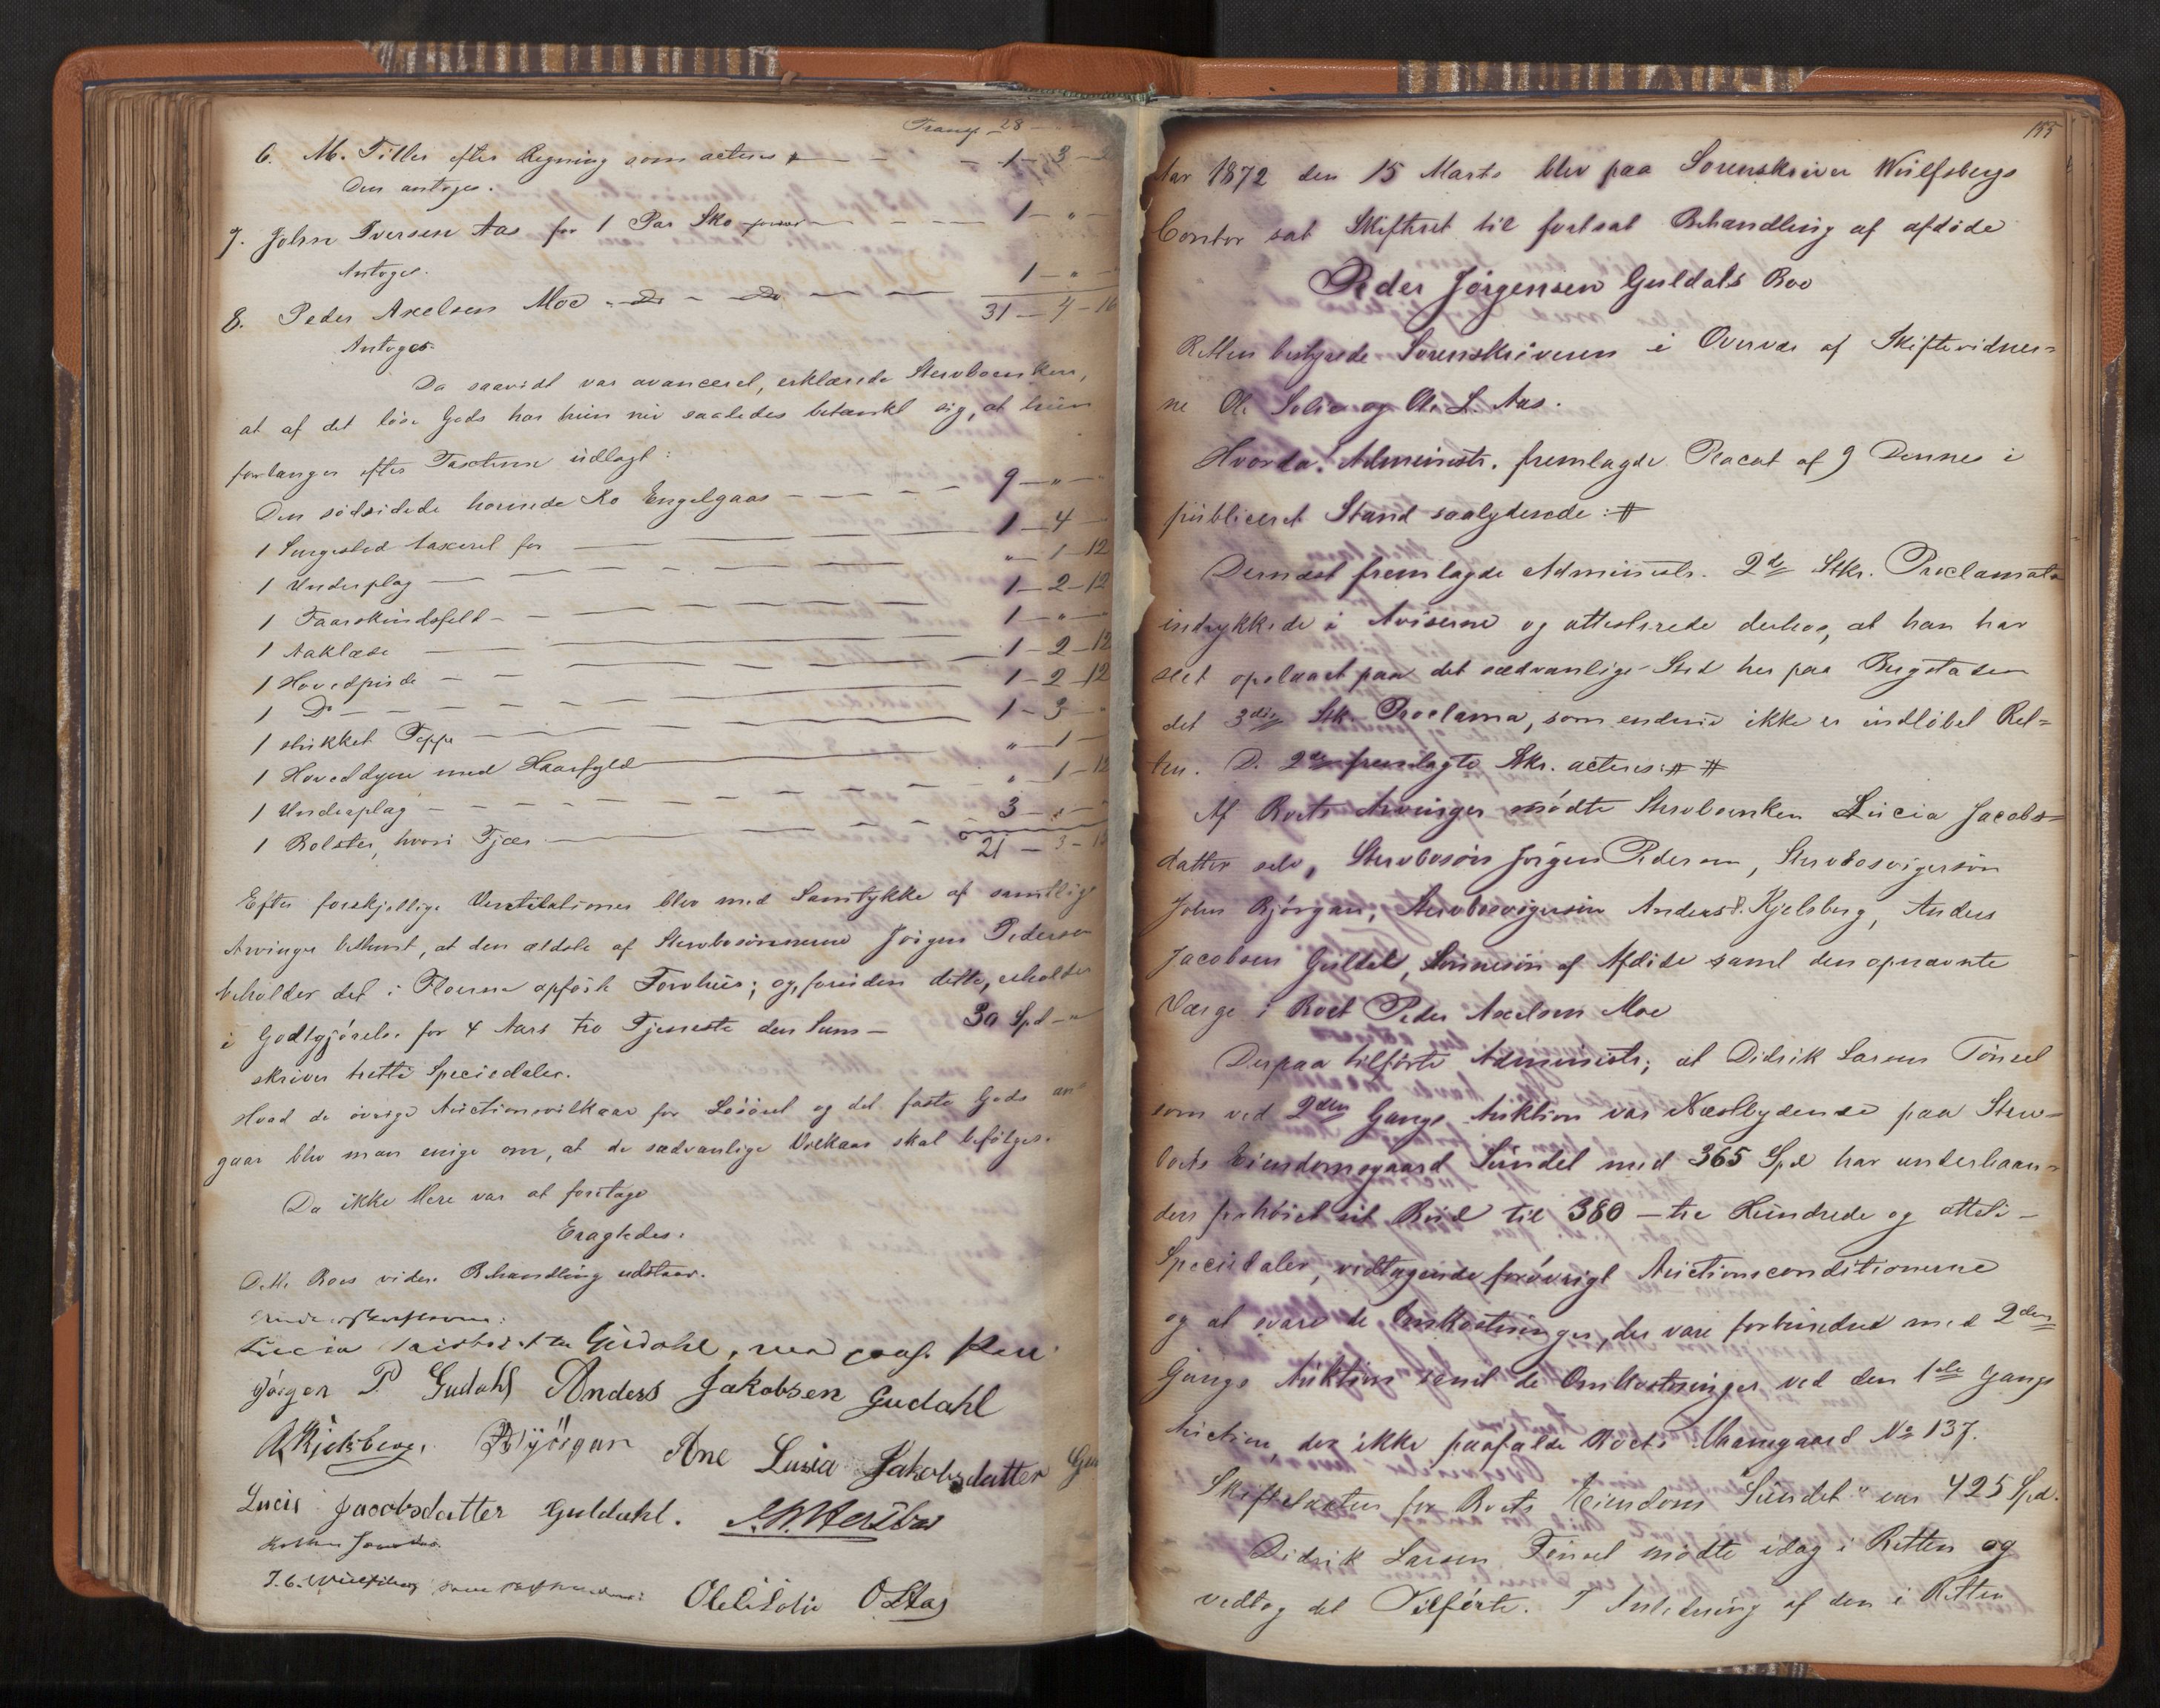 Transp. 28 —
6. M. Tiller efter Regning som acteres # — 1 — 3 —
Den antoges.
7. John Iversen Aas for 1 Par Sko — 1 — " —
Antoges.
8. Peder Axelsen Moe — Do — Do — 1 — " —
31 — 4 — 16
Antoges.
Da saavidt var avanceret, erklærede Stervboenken,
at af det løse Gods har hun nu saaledes betænkt sig, at hun
forlanger efter Taxterne udlagt:
Den rødsidede hornede Ko Engelgaas — 9 — " —
1 Sengested taxeret for — 1 — 4 —
1 Underplag — " — 1 — 12
1 Faarskindsfeld — 1 — 2 — 12
1 Aaklæde — 1 — " — "
1 Hovedpude — 1 — 2 — 12
1 Do — 1 — 2 — 12
1 stukket Teppe — 1 — 3 — "
1 Hoveddyne med Haarfyld — " — 1 —
1 Underplag — " — 1 — 12
1 Bolster, hvori Fjær — 3 — " — "
21 — 3 —
Efter forskjellige Ventilationer blev med Samtykke af samtlige
Arvinger bestemt, at den ældste af Stervbosønnerne Jørgen Pedersen
beholder det i Floerne opførte Fornhus; og, foruden dette, erholder
i Godtgjørelse for 4 Aars tro Tjeneste den Sum — 30 Spd — "
skriver tretti Speciedaler.
Hvad de øvrige Auctionsvilkaar for Løsøret og det faste Gods an-
gaar blev man enige om, at de sædvanlige Vilkaar skal befølges.
Da ikke Mere var at foretage
Eragtedes:
Dette Boes videre Behandling udstaar.
Lucia Gudahl, med paah. Pen
Jörgen P Gudahl Anders Jakobsen Gudahl
A Kjelsberg. Björgan Ane Lusia Jakobsdatter
Lucie Jacobsdatter Guldahl.
J. C. Wulfsberg Ole Solie O L Aas
155
Aar 1872 den 15 Marts blev paa Sorenskriver Wulfsbergs
Contor sat Skifteret til fortsat Behandling af afdøde
Peder Jørgensen Guldals Boe
Retten bestyrede Sorenskriveren i Overvær af Skiftevidner=
ne Ole Solie og Ole L. Aas.
Hvorda: Administr. fremlagde Placat af 9 Dennes i
publiceret Stand saalydende: #
Dernæst fremlagde Administr. 2de Stkr. Proclamata
indrykkede i Aviserne og attesterede derhos, at han har
seet opslaaet paa det sædvanlige Sted her paa Bergstaden
det 3die Stk. Proclama, som endnu ikke er indløbet Ret=
ten. D. 2de fremlagte Stkr. acteres: # #
Af Boets Arvinger mødte Stervboenken Lucia Jacobs=
datter selv, Stervbosøn Jørgen Pedersen, Stervbosvigersøn
John Bjørgan, Stervbosvigersøn Anders P. Kjelsberg, Anders
Jacobsen Guldal, Sønnesøn af Afdøde samt den opnævnte
Værge i Boet Peder Axelsen Moe
Derpaa tilførte Administr; at Didrik Larsen Tønset
som ved 2den Gangs Auktion var Næstbydende paa Sterv=
boets Eiendomsgaard Sundet med 365 Spd har underhaan=
den forhøiet sit Bud til 380 — tre Hundrede og otteti —
Speciedaler, vedtagende forøvrigt Auctionsconditionerne
og at svare de Omkostninger, der vare forbundne med 2den
Gangs Auktion samt de Omkostninger ved den 1ste Gangs
Auction, der ikke paafalde Boets Mannegaard No 137.
Skiftetaxten for Boets Eiendom "Sundet" var 425 Spd.
Didrik Larsen Tønset mødte idag i Retten og
vedtog det Tilførte. I Anledning af den i Retten